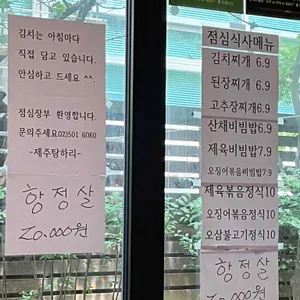 김치는 아침마다
직접 담고 있습니다.
안심하고 드세요 ^^.
점심장부 환영합니다.
문의주세요.02)501 6060
-제주탐하리-
항정살
20.000원
점심식사메뉴
김치찌개 6.9
된장찌개 6.9
고추장찌개 6.9
산채비빔밥6.9
제육비빔밥7.9
오징어볶음비빔밥7.9
제육볶음정식10
오징어볶음정식10
오삼불고기정식10
항정살
20.000원